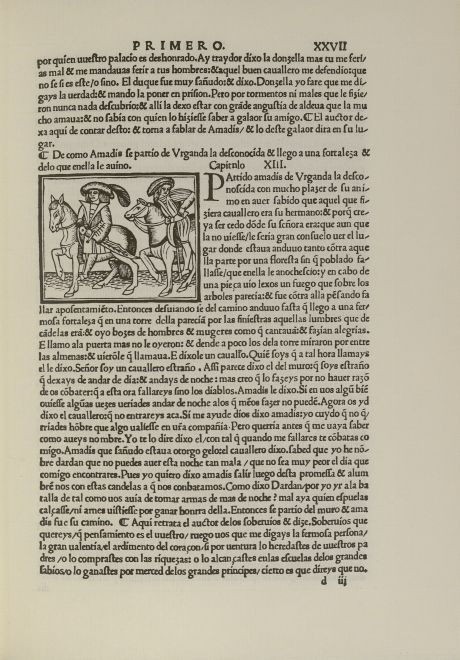 PRIMERO. XXVII
por quien vuestro palacio es deshonrado. Ay traydor dixo la donzella mas tu me feri/
as mal & me mandauas ferir a tus hombres: & aquel buen cauallero me defendio: que
no se si es este/o sino. El duque fue muy sañudo: & dixo. Donzella yo fare que me di/
gays la uerdad: & mando la poner en prision. Pero por tormentos ni males que le fizie/
ron nunca nada descubrio: & alli la dexo estar con grãde angustia de aldeua que la mu
cho amaua: & no sabia con quien lo hiziesse saber a galaor su amigo. ¶ El auctor de/
xa aqui de contar desto: & torna a fablar de Amadis/ & lo deste galaor dira en su lu/
gar.
¶ De como Amadis se partio de Vrganda la desconocida & llego a una fortaleza &
delo que enella le auino. Capitulo XIII.
PArtido amadis de Vrganda la desco/
noscida con mucho plazer de su ani/
mo en auer sabido que aquel que fi/
ziera cauallero era su hermano: & porq̃ cre/
ya ser cedo dõde su señora era: que aun que
la no uiesse/le seria gran consuelo uer el lu/
gar donde estaua anduuo tanto cõtra aque
lla parte por una floresta sin q̃ poblado fa/
llasse/que enella le anochescio: y en cabo de
una pieça uio lexos un fuego que sobre los
arboles parecia: & fue cõtra alla pẽsando fa
llar aposentamiẽto. Entonces desuiando se del camino anduuo fasta q̃ llego a una fer/
mosa fortaleza q̃ en una torre della parecia por las finiestras aquellas lumbres que de
cãdelas erã: & oyo bozes de hombres & mugeres como q̃ cantauã: & fazian alegrias.
E llamo ala puerta mas no le oyeron: & dende a poco los dela torre miraron por entre
las almenas: & uierõle q̃ llamaua. E dixole un cauallo. Quiẽ soys q̃ a tal hora llamays
el le dixo. Señor soy un cauallero estraño. Assi parece dixo el del muro: q̃ soys estraño
q̃ dexays de andar de dia: & andays de noche: mas creo q̃ lo fazeys por no hauer razõ
de os cõbater: q̃ a esta ora fallareys sino los diablos. Amadis le dixo. Si en uos algũ biẽ
ouiesse algũas uezes ueriades andar de noche alos q̃ menos fazer no puedẽ. Agora os yd
dixo el cauallero: q̃ no entrareys aca. Si me ayude dios dixo amadis: yo cuydo q̃ no q̃/
rriades hõbre que algo ualiesse en uña compañia. Pero querria antes q̃ me uaya saber
como aueys nombre. Yo te lo dire dixo el/con tal q̃ quando me fallares te cõbatas co
migo. Amadis que sañudo estaua otorgo gelo: el cauallero dixo. sabed que yo he nõ/
bre dardan que no puedes auer esta noche tan mala/ que no sea muy peor el dia que
comigo encontrares. Pues yo quiero dixo amadis salir luego desta promessa & alum
brẽ nos con estas candelas a q̃ nos combatamos. Como dixo Dardan/por yo yr ala ba
talla de tal como uos auia de tomar armas de mas de noche? mal aya quien espuelas
calçasse/ni armas uistiesse por ganar honrra della. Entonces se partio del muro & ama
dis fue su camino. ¶ Aqui retrata el auctor delos soberuios & dize. Soberuios que
quereys/q̃ pensamiento es el vuestro/ ruego uos que me digays la fermosa persona/
la gran ualentia/el ardimento del coraçon/si por uentura lo heredastes de uuestros pa
dres/o lo comprastes con las riquezas: o lo alcançastes enlas escuelas delos grandes
sabios/o lo ganastes por merced delos grandes principes/ cierto es que direys que no.
d iij